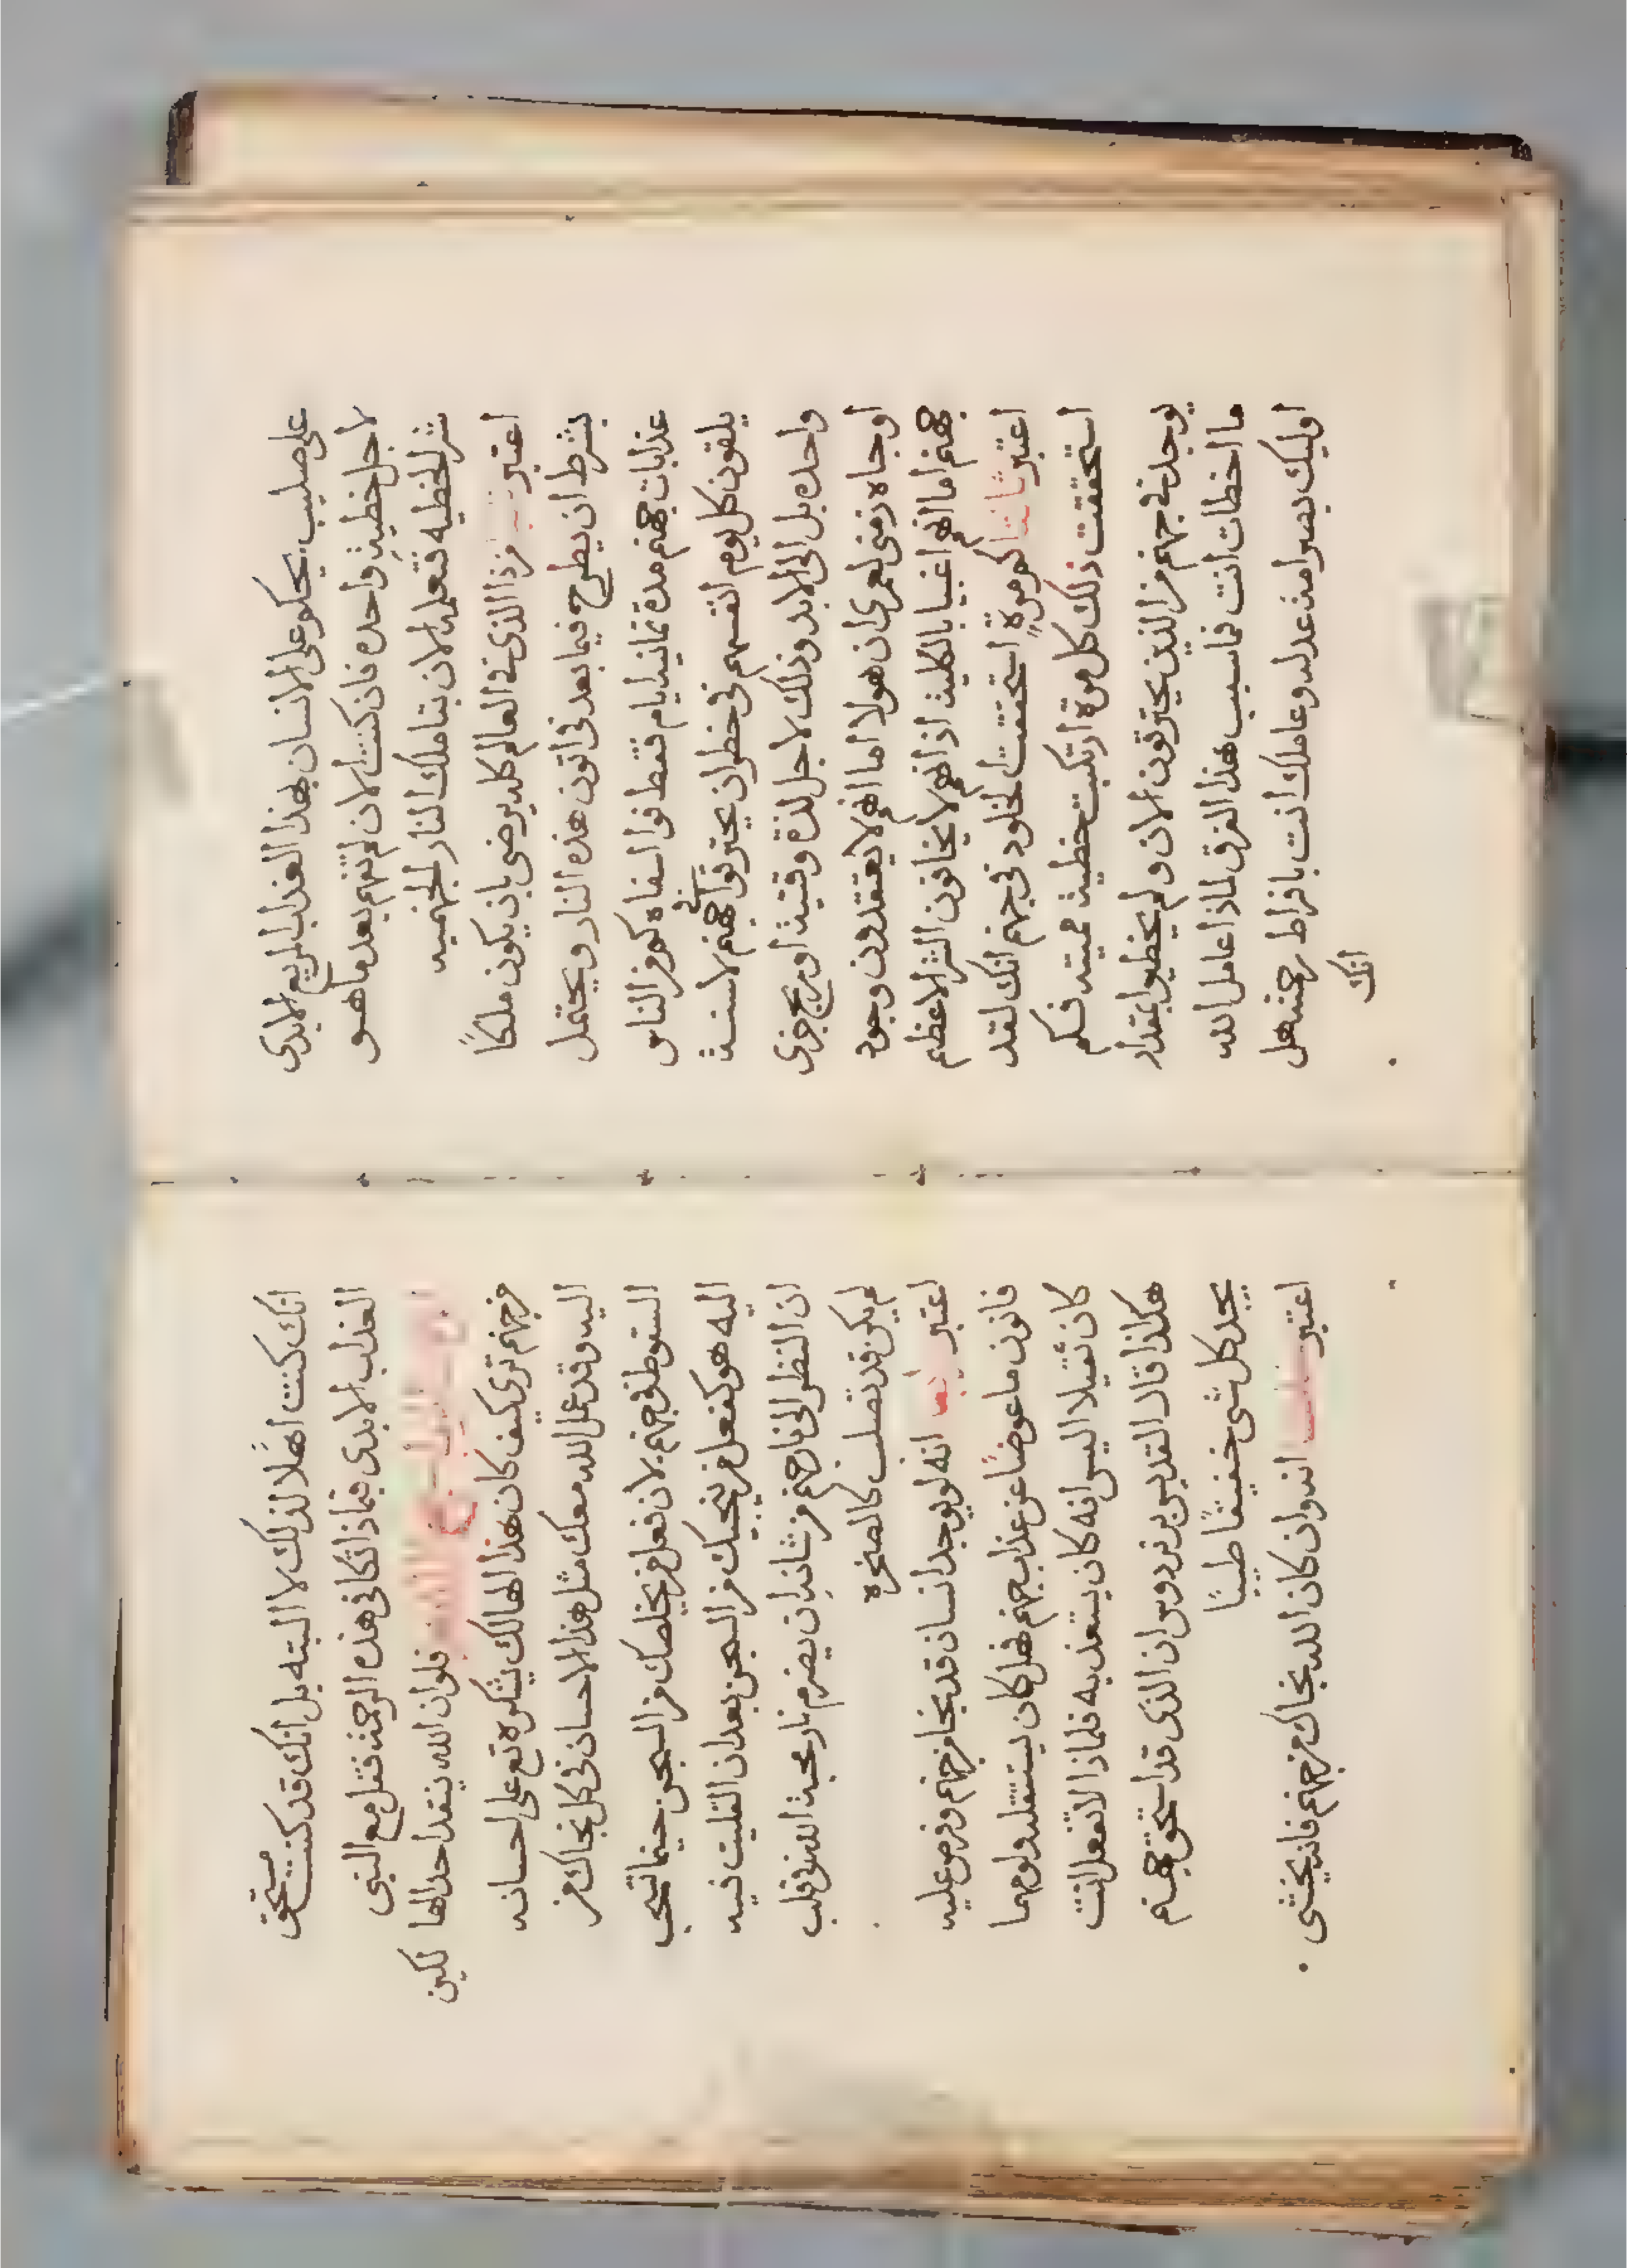 على صليب يحكو على الانسان بهذا العذاب المريع الابدى
لاجل خطية واحده فان كنت الان لم تفهم بعد ما هو
شر الخطيه فتعلمه الان بتاملك النار الجهنميه
اعتبر من ذا الذى فى العالم كله يرضى بان يكون ملكاً
بشرط ان يطرح فيما بعد فى اتون هذه النار ويحتمل
عذابات جهنم مدة ثمانية ايام فقط فوا اسفاه كم من الناس
يلقون كل يوم انفسهم فى خطر ان يحترقوا فى جهنم لا سنة
واحده بل الى الابد وذلك لاجل لذة وقتية او ربح جزى
او جاه زمنى لعمرى ان هولا اما انهم لا يعتقدون وجود
جهنم اما انهم اغبيا بالكلية اذ انهم لا يخافون الشر الاعظم
اعتبر ثالثا كم مرةٍ استحققت الخلود فى جهنم انك لقد
استحققت ذلك كل مرة ارتكبت خطية مميته فكم
يوجد فى جهنم من الذين يحترقون الان ولم يخطيوا بمقدار
ما اخطات انت فما سبب هذا الفرق لماذا عامل الله
اوليك بصرامة عدله وعاملك انت بافراط رحمته هل
انك
انك كنت اهلًا لذلك لا البته بل انك قد كنت مستحق
العذاب الابدى فبماذا تكافى هذه الرحمة فقل مع النبى
فلو ان الله ينقذ احد الها لكين
من جهنم ترى كيف كان هذا الهالك يشكره تع على احسانه
اليه وقد عمل الله معك مثل هذا الاحسان فى كل نجاك من
السقوط فى جهنم. لان فعل من يخلصك من السجن حينما تسحب
اليه هو كفعل من ينجيك من السجن بعد ان القليت فيه
ان النظر الى نار جهنم من شانه ان يضرم نار محبة الله فى قلب
لم يكن قد تصلب كالصخره
اعتبر رابعا انه لو يوجد انسان قد نجا من جهنم وفرض عليه
قانون ما عوضًا عن عذاب جهنم فهل كان يستثقله ولو مهما
كان ثقيلا اليس انه كان يستعذبه فلماذا لا تفعل انت
هكذا قال القديس برنردوس ان الذى قد استحق جهنم
يجد كل شى خفيفًا طيبًا
اعتبر انه وان كان الله نجاك من جهنم فانه يخشى